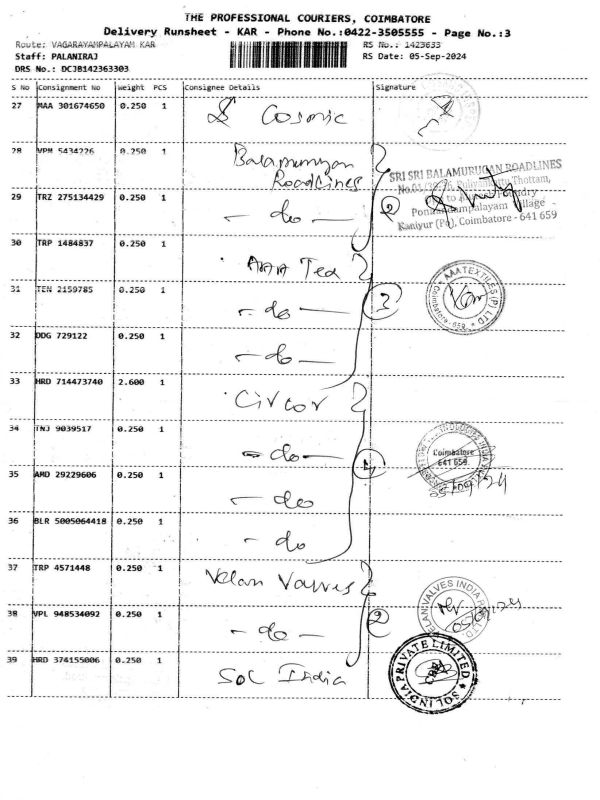 THE PROFESSIONAL COURIERS, COIMBATORE
Delivery Runsheet - KAR - Phone No.:0422-3505555 - Page No.:3
Route: VAGARAYAMPALAYAM KAR
RS No.: 1423633
Staff: PALANIRAJ
RS Date: 05-Sep-2024
DRS No.: DCJB142363303
S No Consignment No Weight PCS Consignee Details Signature
27 MAA 301674650 0.250 1 Cosmic
28 VPM 5434226 0.250 1 Balamurugan
Roadlines
SRI SRI BALAMURUGAN ROADLINES
29 TRZ 275134429 0.250 1 - do - 2
Kaniyur (Po), Coimbatore - 641 659
30 TRP 1484837 0.250 1 AAA Tex
31 TEN 2159785 0.250 1 - do - 3
AAA TEXTILES (P) LTD
32 DDG 729122 0.250 1 - do -
33 HRD 714473740 2.600 1 Circor
34 TNJ 9039517 0.250 1 - do - 4
Coimbatore
641 659
35 AMD 29229606 0.250 1 - do
36 BLR 5005064418 0.250 1 - do
37 TRP 4571448 0.250 1 Velan Valves
VELAN VALVES INDIA
38 VPL 948534092 0.250 1 - do - 2
39 HRD 374155006 0.250 1 SOL India
SOL INDIA PRIVATE LIMITED